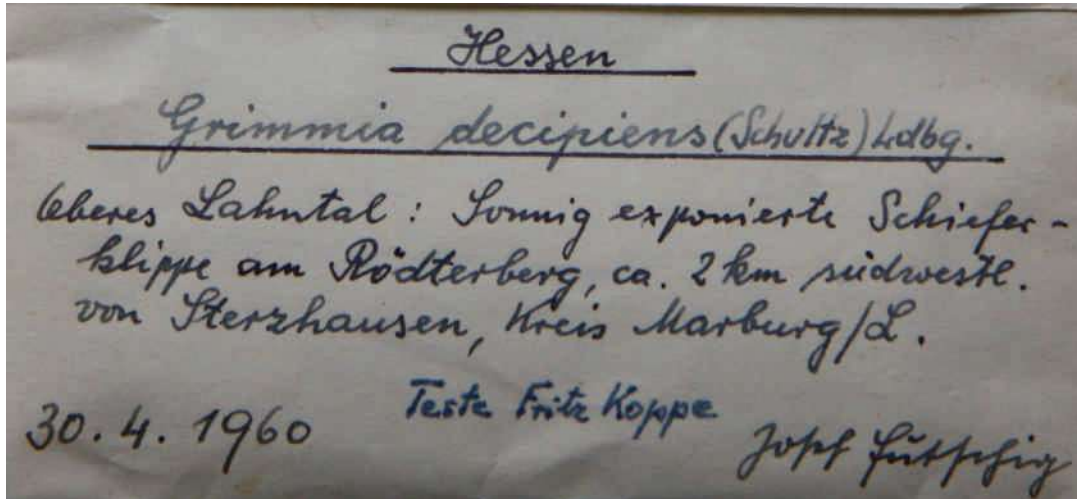 Hessen
Grimmia decipiens (Schultz) Ldbg.
Oberes Lahntal : Sonnig exponierte Schiefer-
klippe am Rödterberg, ca. 2 km südwestl.
von Sterzhausen, Kreis Marburg/L.
Teste Fritz Koppe
30. 4. 1960
Josef Futschig